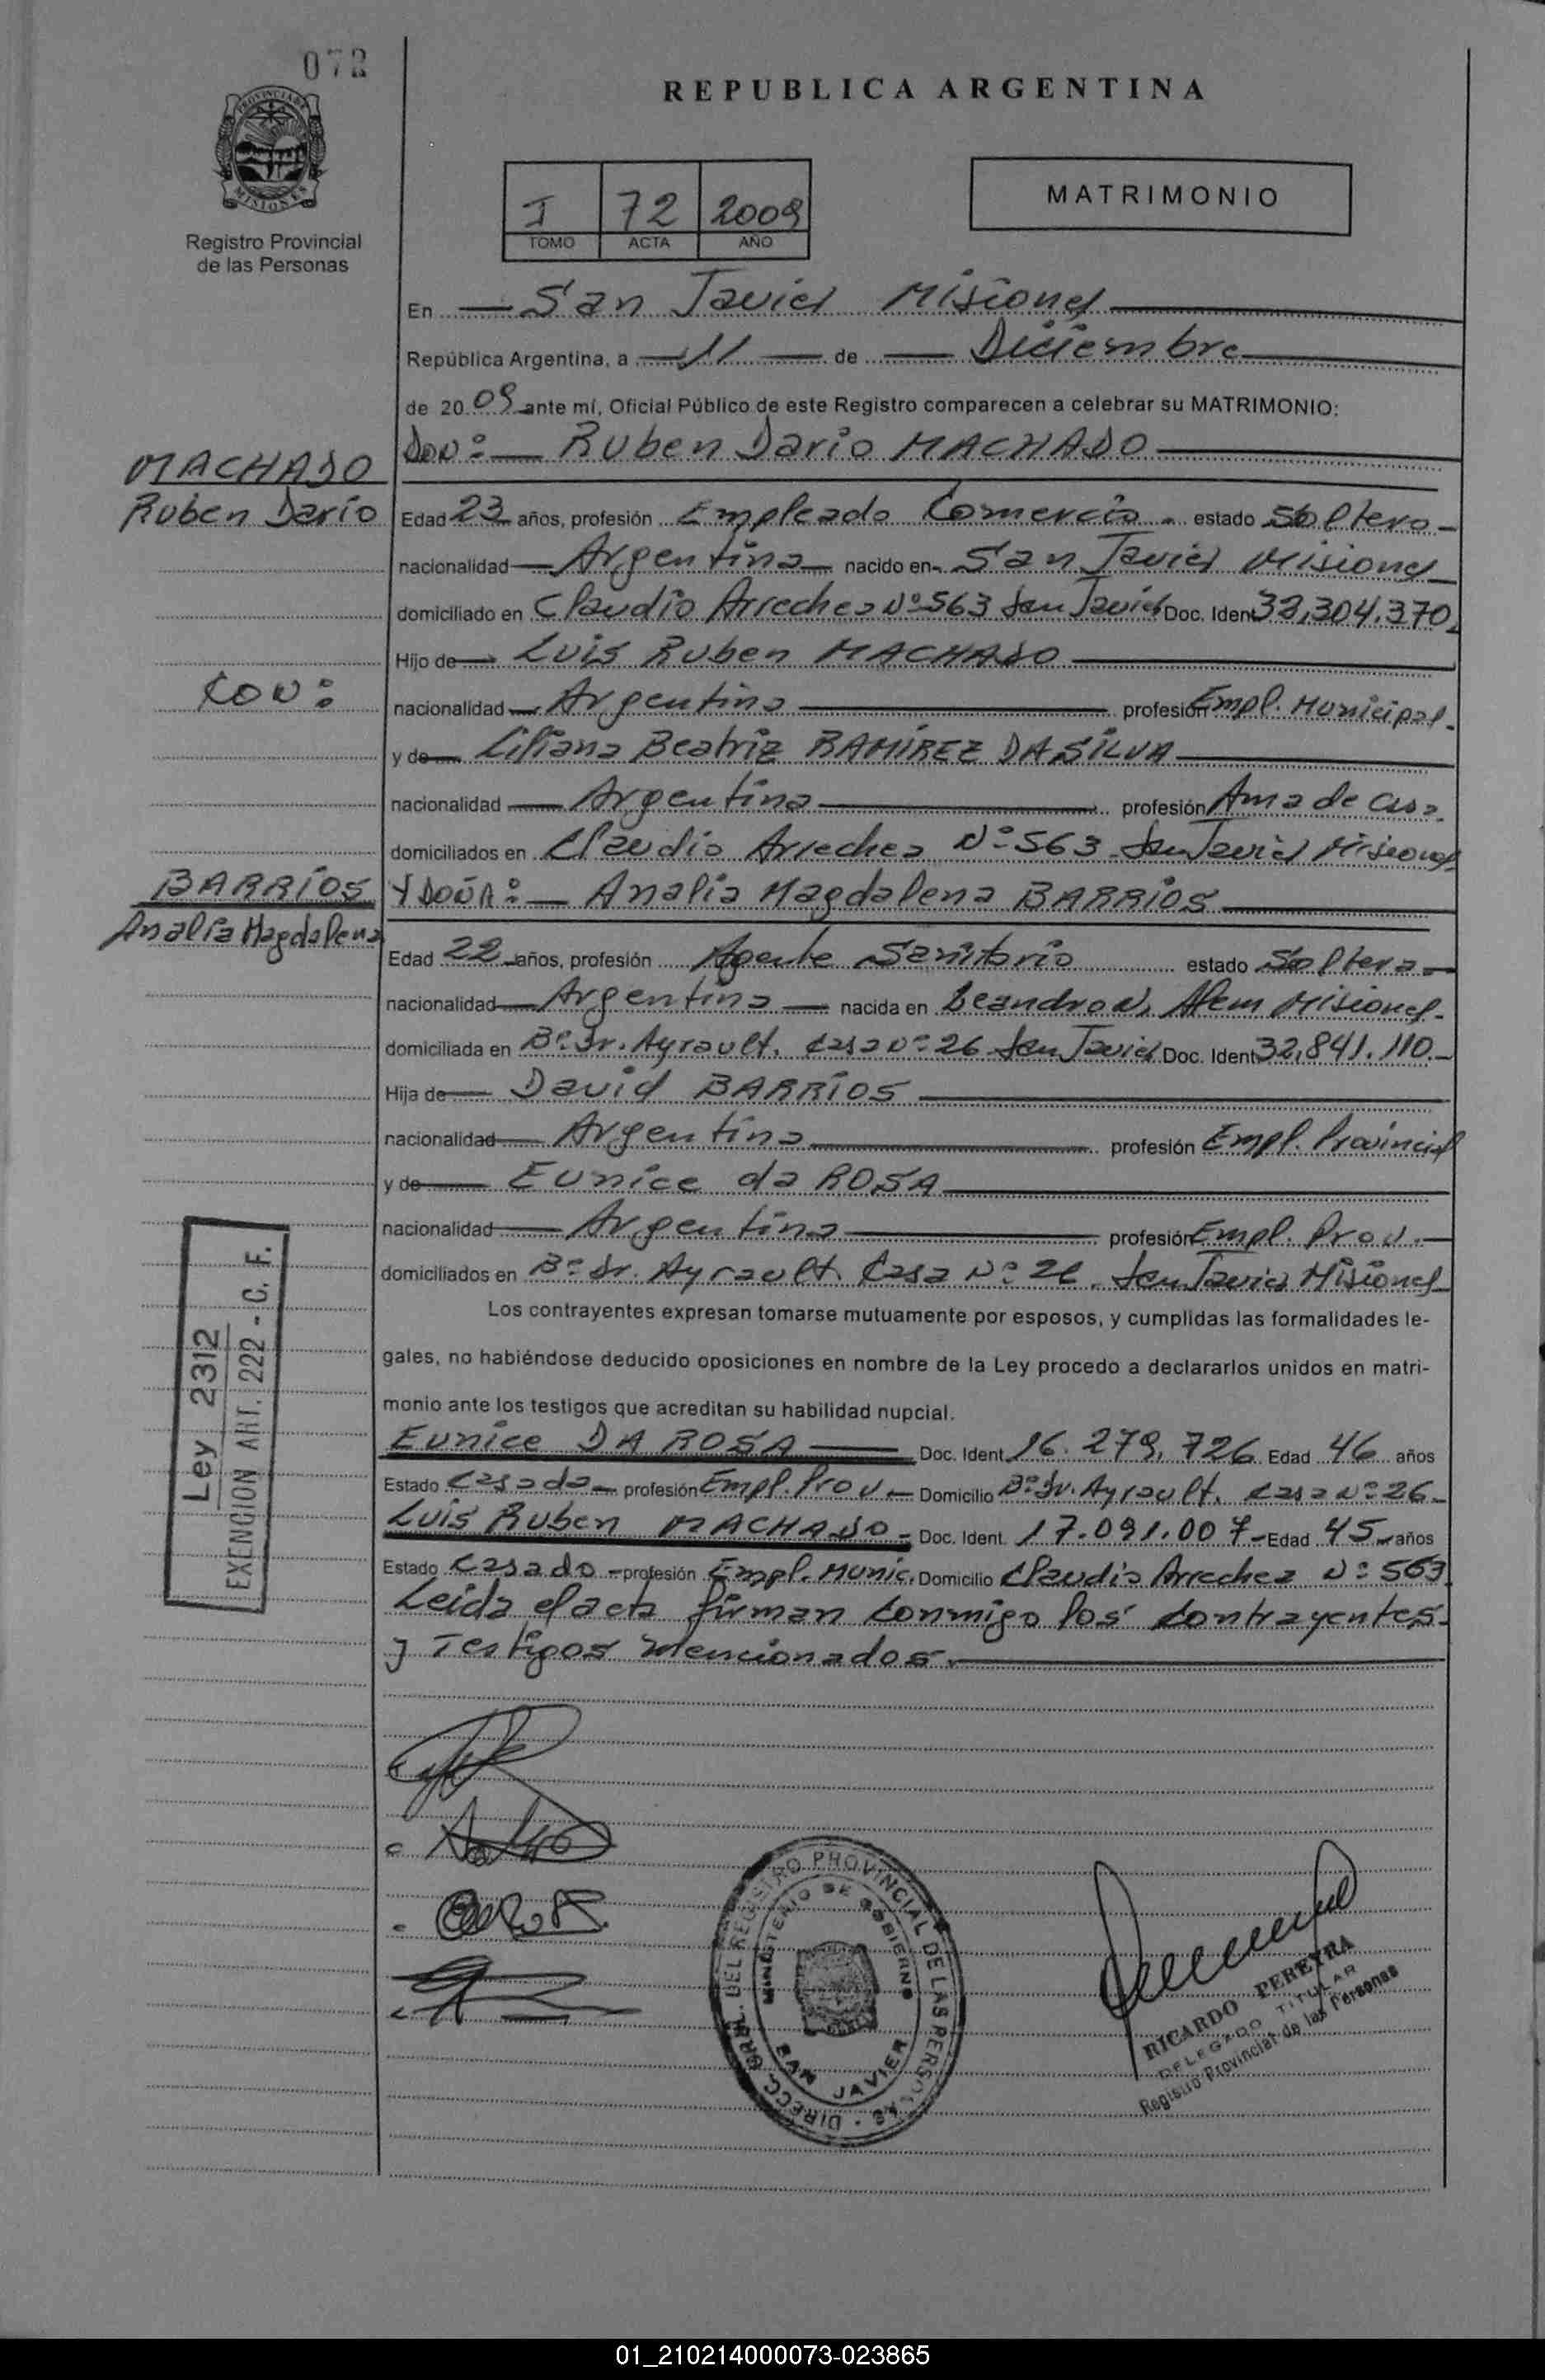 072
PROVINCIA DE
MISIONES
Registro Provincial
de las Personas
REPUBLICA ARGENTINA
I 72 2009
TOMO ACTA AÑO
MATRIMONIO
En San Javier Misiones
República Argentina, a 11 de Diciembre
de 2009 ante mí, Oficial Público de este Registro comparecen a celebrar su MATRIMONIO:
MACHADO
Ruben Dario
DON: Ruben Dario MACHADO
Edad 23 años, profesión Empleado Comercio estado Soltero
nacionalidad Argentina nacido en San Javier Misiones
domiciliado en Claudio Arrechea Nº 563 San Javier Doc. Ident 32,304.370
Hijo de Luis Ruben MACHADO
CON:
nacionalidad Argentina profesión Empl. Municipal.
y de Liliana Beatriz RAMÍREZ DASILVA
nacionalidad Argentina profesión Ama de casa.
domiciliados en Claudio Arrechea Nº 563 San Javier Misiones
BARRÍOS
Analía Magdalena
Y DOÑA: Analía Magdalena BARRÍOS
Edad 22 años, profesión Agente Sanitario estado Soltera
nacionalidad Argentina nacida en Leandro N. Alem Misiones.
domiciliada en Bº Dr. Ayrault. Casa Nº 26 San Javier Doc. Ident 32,841.110.
Hija de David BARRÍOS
nacionalidad Argentina profesión Empl. Provincial
y de Eunice da ROSA
nacionalidad Argentina profesión Empl. Prov.
domiciliados en Bº Dr. Ayrault. Casa Nº 26. San Javier Misiones
Los contrayentes expresan tomarse mutuamente por esposos, y cumplidas las formalidades le-
gales, no habiéndose deducido oposiciones en nombre de la Ley procedo a declararlos unidos en matri-
monio ante los testigos que acreditan su habilidad nupcial.
Ley 2312
EXENCION ART. 222 - C. F.
Eunice DA ROSA Doc. Ident. 16.279,726 Edad 46 años
Estado Casada profesión Empl. Prov. Domicilio Bº Dr. Ayrault. Casa Nº 26
Luis Ruben MACHADO Doc. Ident. 17.091.007 Edad 45 años
Estado Casado profesión Empl. Munic. Domicilio Claudio Arrechea Nº 563
Leída el acta firman conmigo los contrayentes
y Testigos Mencionados.
DIRECC. GRAL. DEL REGISTRO PROVINCIAL DE LAS PERSONAS
MINISTERIO DE GOBIERNO
SAN JAVIER
RICARDO PEREYRA
DELEGADO TITULAR
Registro Provincial de las Personas
01_210214000073-023865